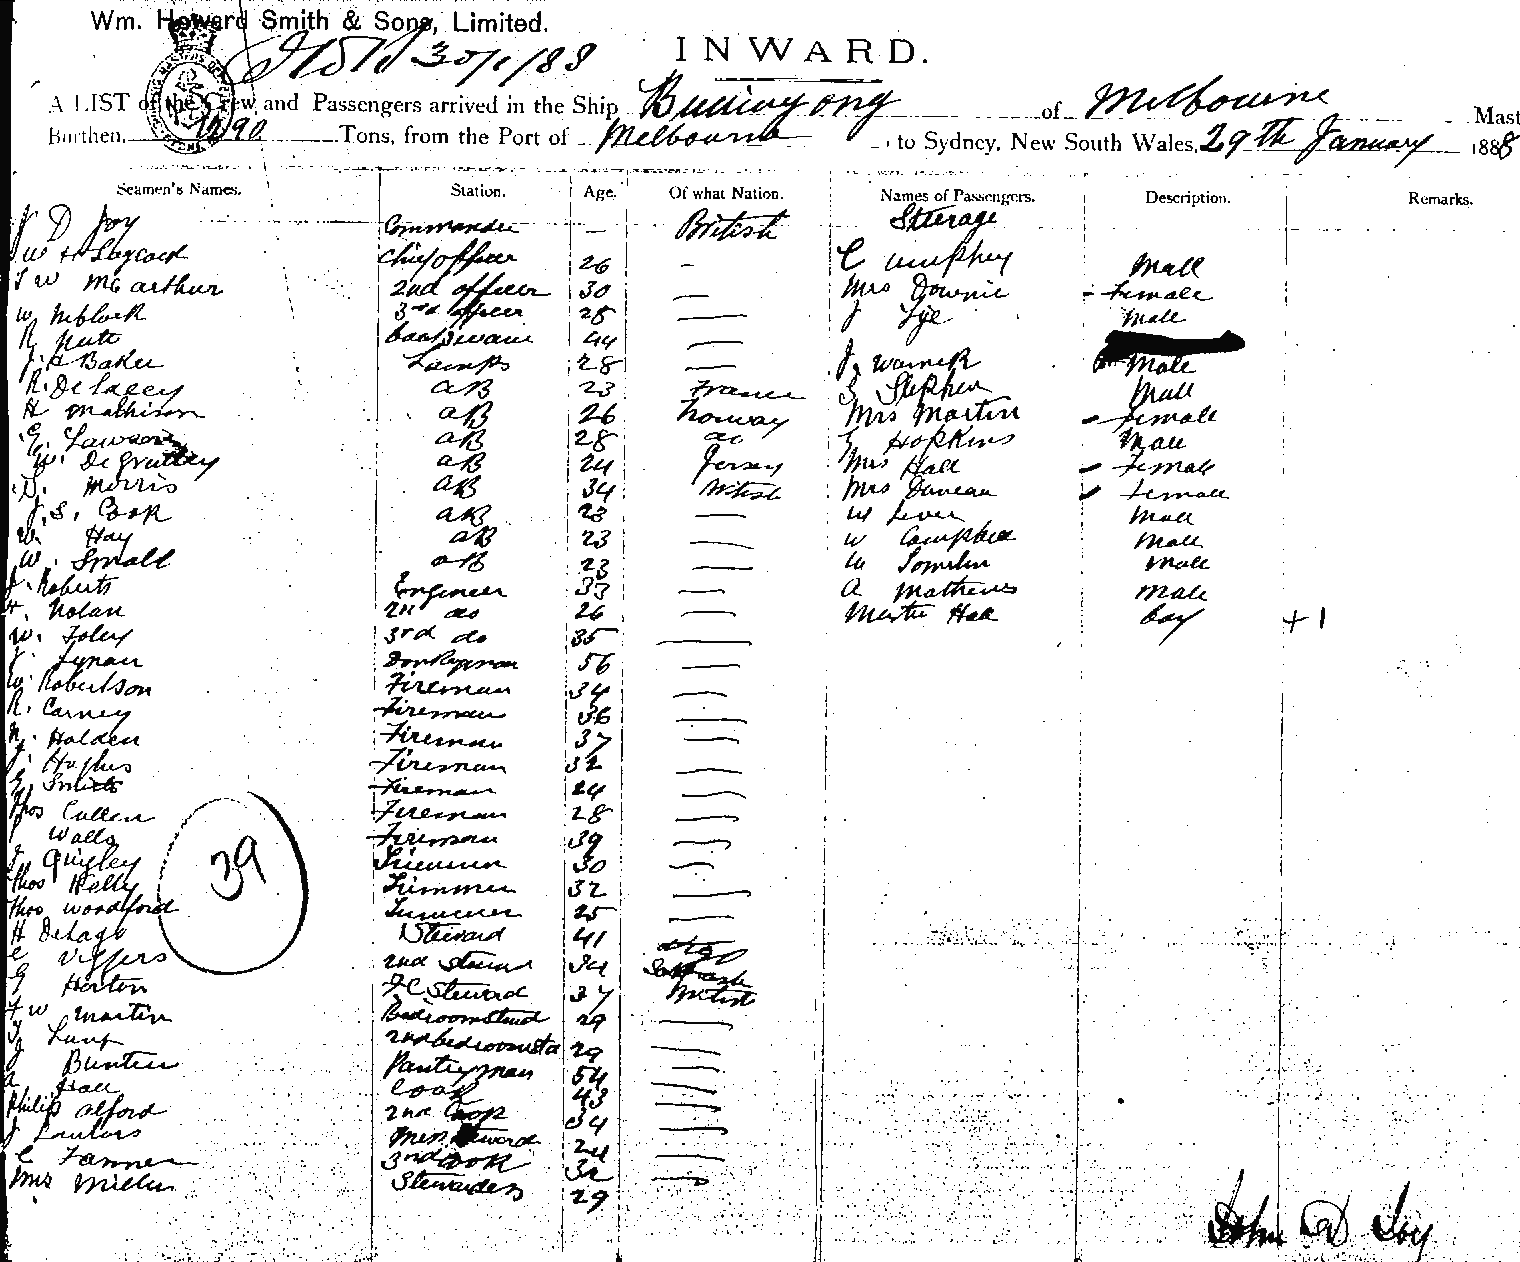 Wm. Howard Smith & Sons, Limited.
30/1/88
INWARD.
A LIST of the Crew and Passengers arrived in the Ship Buninyong of Melbourne Mast
Burthen, 1290 Tons, from the Port of Melbourne to Sydney, New South Wales, 29th January 1888
Seamen's Names. Station. Age. Of what Nation. Names of Passengers. Description. Remarks.
J D Joy Commander — British Steerage
W H Laycock Chief officer 26 — C Umphrey Male
McArthur 2nd officer 30 — Mrs Downie - Female
W. McClock 3rd officer 28 — J Lye Male
R Pute boatswain 44 —
J. H Baker Lamps 28 — J. Warnek Male
R. De Lacey AB 23 France S Stephen Male
H Mathison AB 26 Norway Mrs Martin - Female
E. Lawson AB 28 do Hopkins Male
W. De Gruttey AB 24 Jersey Mrs Hall - Female
D. Morris AB 34 British Mrs Duncan - Female
J. S. Cook AB 23 — W Lever Male
W. Hay AB 23 — W Campbell Male
W. Small AB 23 — W Tomlin Male
J. Roberts Engineer 33 — A Mathews Male
Nolan 2nd do 26 — Master Hall boy +1
W. Foley 3rd do 35 —
J. Lynan Donkeyman 56 —
W. Robertson Fireman 34 —
R. Carney Fireman 36 —
N. Holden Fireman 37 —
J. Hughes Fireman 32 —
E. Smith Fireman 24 —
Thos Cullen Fireman 28 —
J Walls Fireman 39 —
J. Quigley Trimmer 30 —
Thos Kelly Trimmer 32 —
Thos Woodford Trimmer 25 —
39
H DeLago Steward 41
C Viggers 2nd Steward 34
G Horton F C Steward 37 British
F W Martin Bedroom Steward 29 —
Lunt 2nd bedroom std 29 —
J Bunten Pantryman 54 —
A Hall Cook 43 —
Philip Alford 2nd Cook 34 —
J Lautors Mess Steward 24 —
C Fanner 3rd Cook 32 —
Mrs Miller Stewardess 29 —
John D Joy